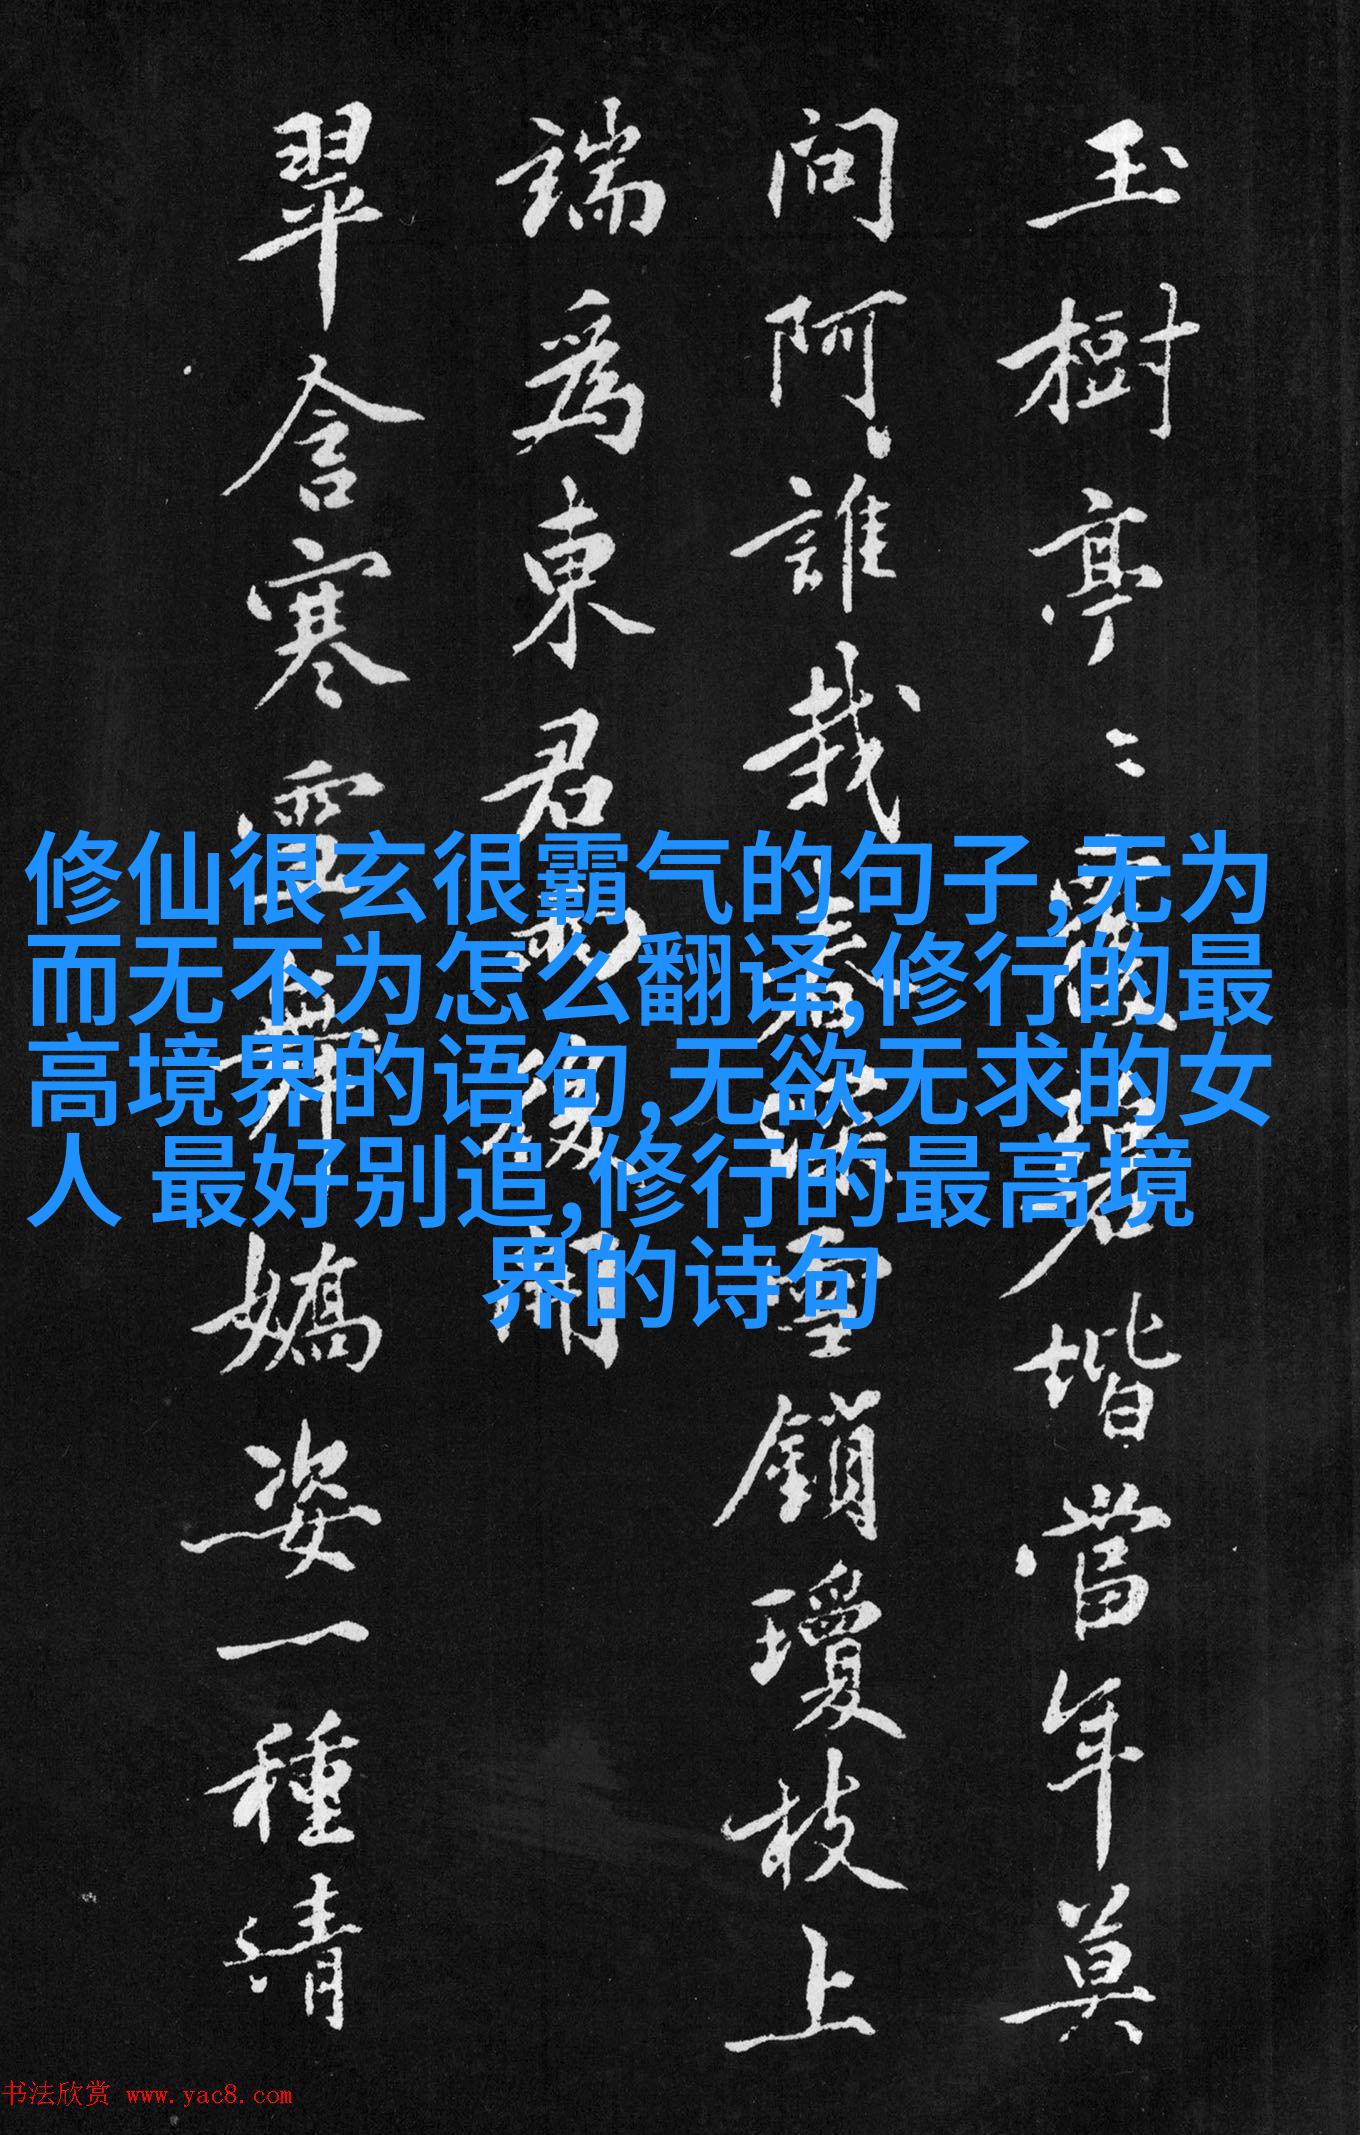 玉樹亭〻碧堦當年莫
問阿誰栽春深雪鎖瓊枝上
端爲東君後開
翠含寒舞嬌姿一種清
修仙很玄很霸气的句子,无为
而无不为怎么翻译,修行的最
高境界的语句,无欲无求的女
人 最好别追,修行的最高境
界的诗句
书法欣赏 www.yac8.com